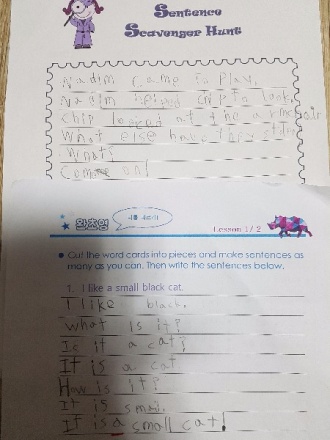 Sentence
Scavenger Hunt
Nadim came to play.
Nadim helped chip to look.
chip looked at the armchair
What else have they stolen
What?
Come on!
왕초영
Lesson 1/2
Cut the word cards into pieces and make sentences as
many as you can. Then write the sentences below.
1. I like a small black cat.
I like black.
What is it?
Is it a cat?
It is a cat
How is it?
It is small.
It is a small cat!